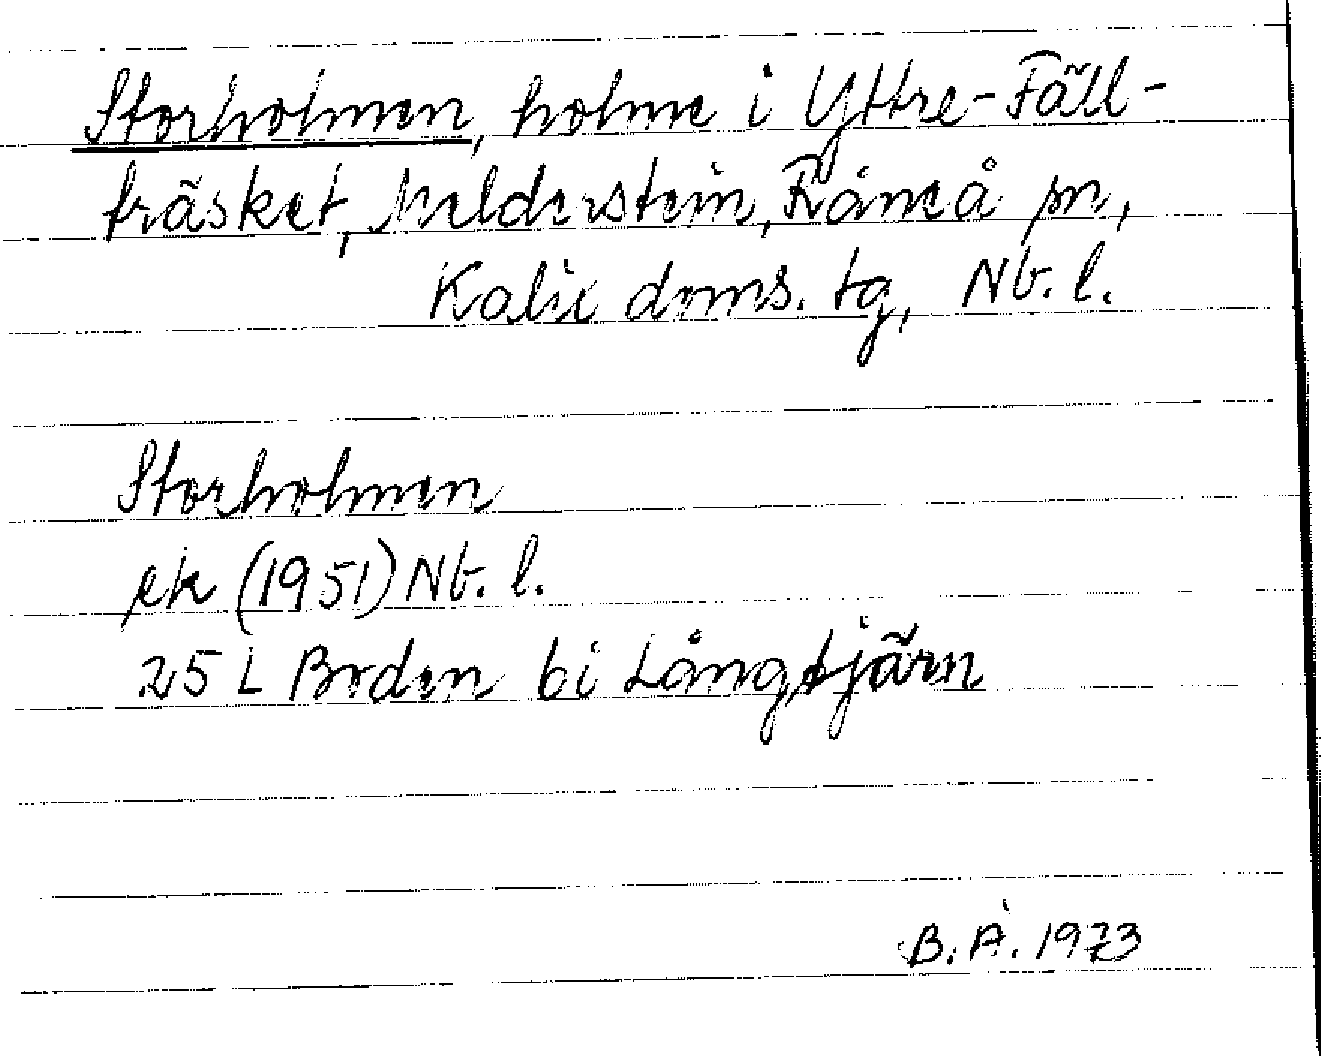 Storholmen, holme i Yttre-Fäll-
träsket, Melderstein, Råneå sn,
Kalix doms. tg, Nb. l.
Storholmen
ek (1951) Nb. l.
25 L Boden bi Långtjärn
B. Å. 1973